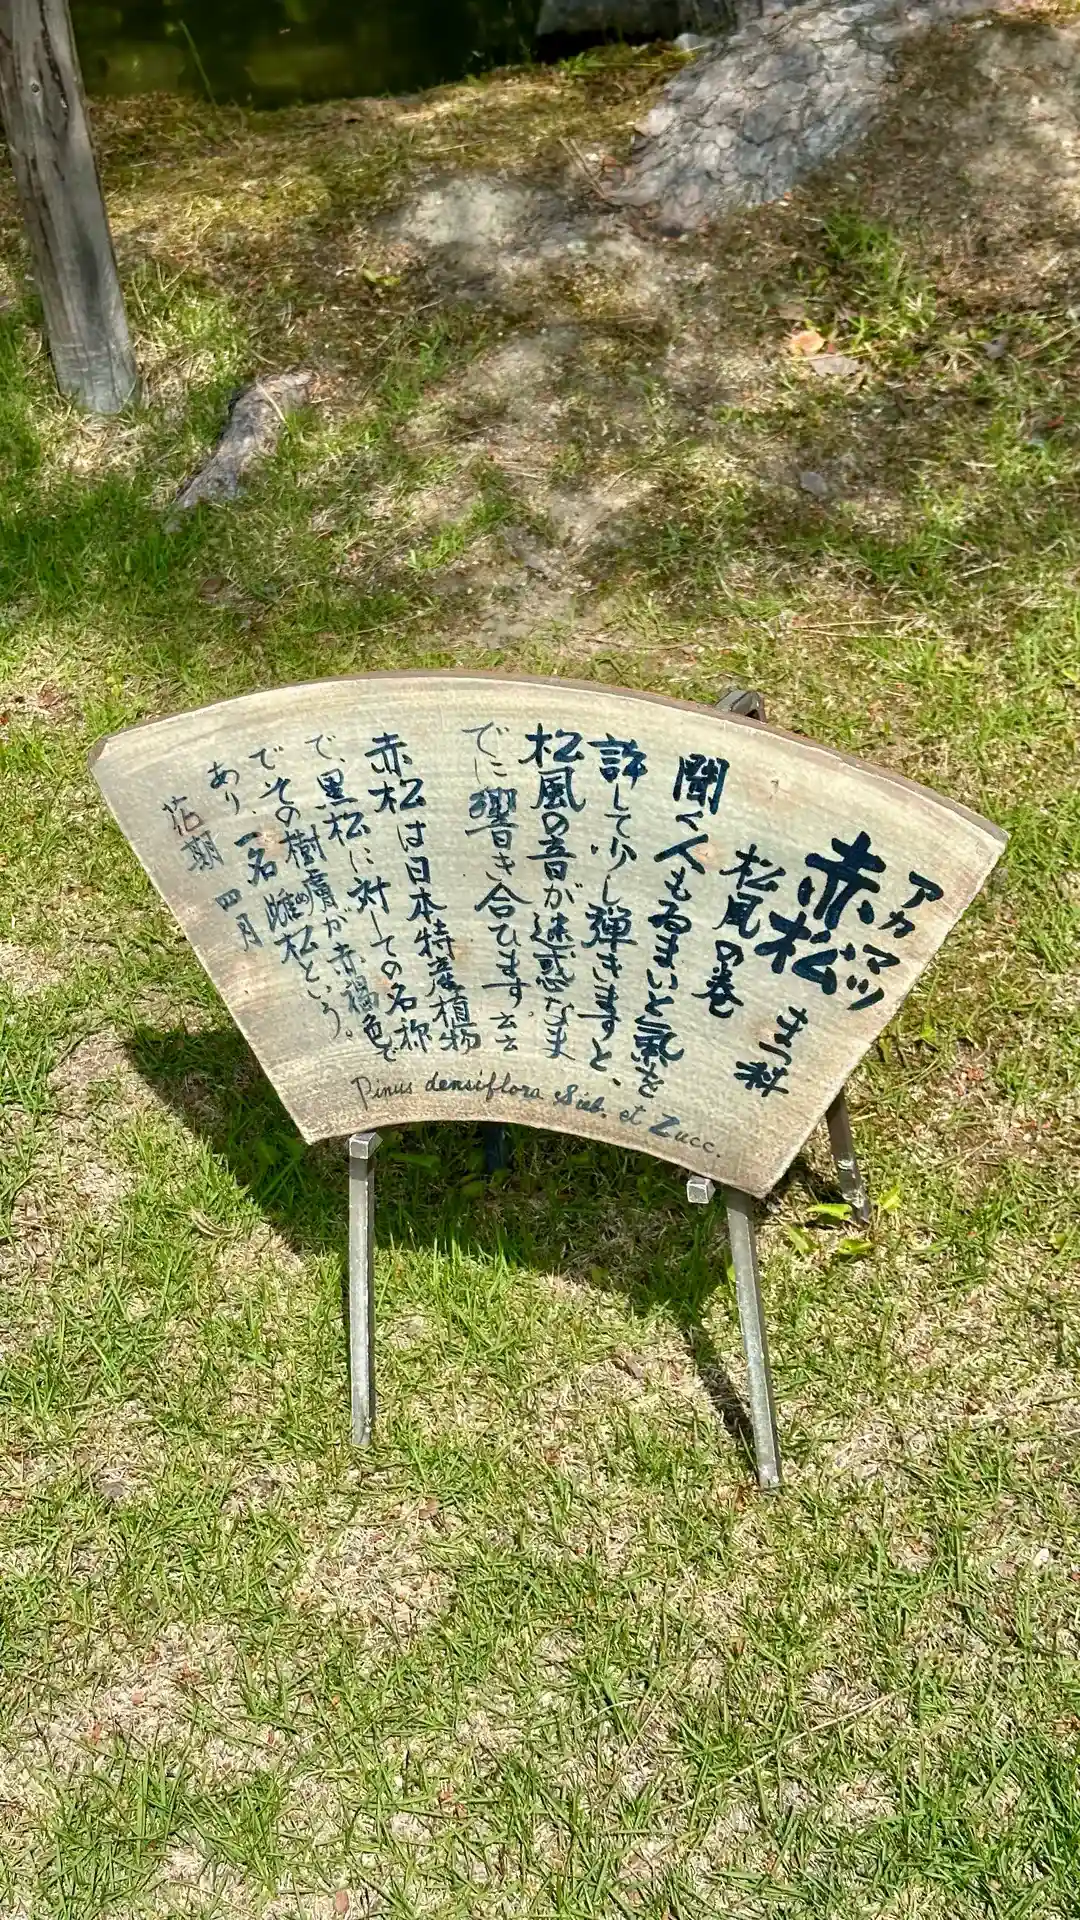 アカマツ
赤松 まつ科
松風の巻
聞く人もゐまいと氣を
許して少し弾きますと、
松風の音が迷惑なま
でに響き合ひます 云云
赤松は日本特産植物
で、黒松に対しての名称
で、その樹膚が赤褐色で
あり、一名 雌松という。
花期 四月
Pinus densiflora Sieb. et Zucc.